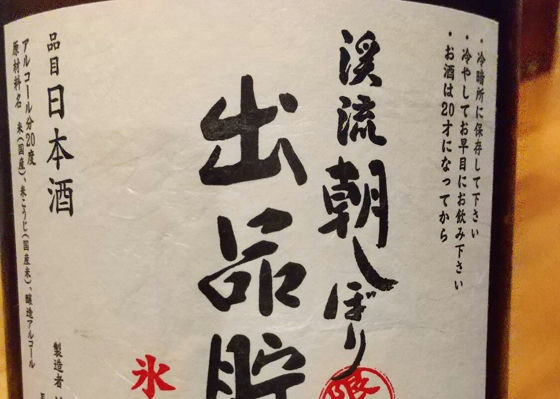 ・冷暗所に保存して下さい
・冷やしてお早目にお飲み下さい
・お酒は20才になってから
渓流朝しぼり
出品貯
氷
製造者
品目 日本酒
アルコール分20度
原材料名 米(国産)、米こうじ(国産米)、醸造アルコール